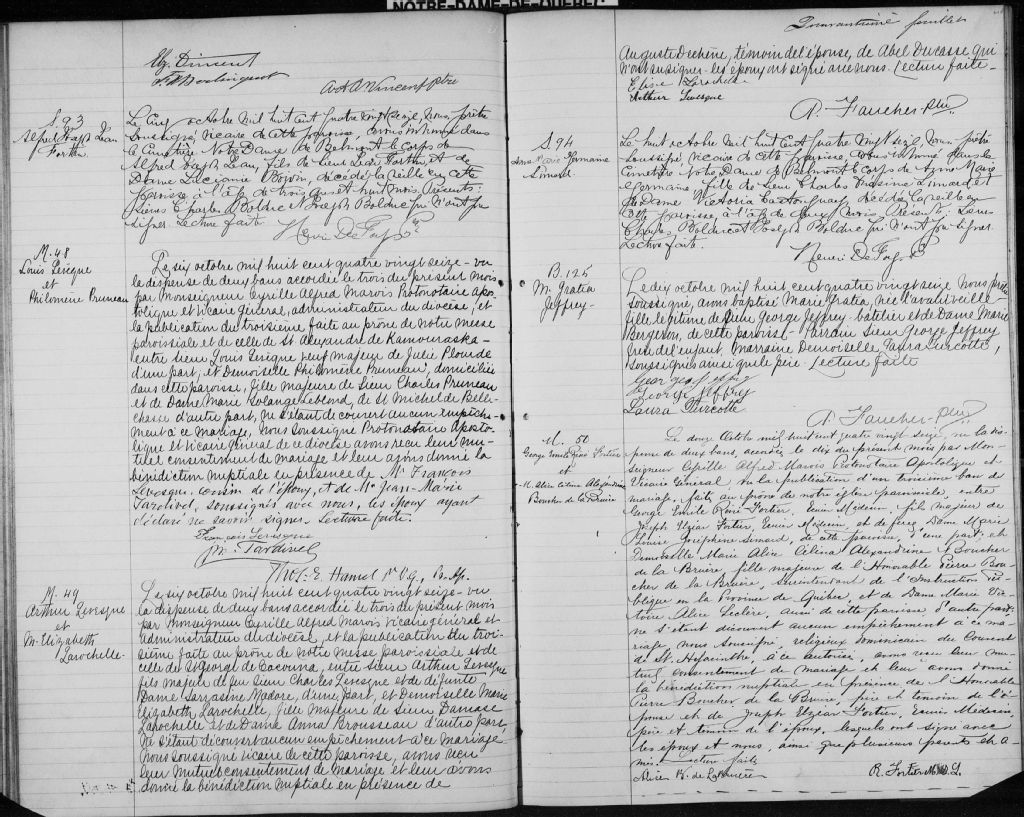 NOTRE-DAME-DE-QUEBEC
Quarantième feuillet
S. 93
Alfred Jos. Léon
Fortin
Le cinq octobre mil huit cent quatre vingt seize, nous, prêtre
soussigné, vicaire de cette paroisse, avons inhumé dans
le cimetière Notre Dame de Belmont le corps de
Alfred Joseph Léon, fils de Sieur Léon Fortin, et de
Dame Lucianie Boivin, décédé la veille en cette
paroisse à l'âge de trois ans et huit mois. Présents:
Sieurs Charles Bolduc et Joseph Bolduc qui n'ont pu
signer. Lecture faite
Henri DeFoy Ptre
M. 48
Louis Levêque
et
Philomène Pruneau
Le six octobre mil huit cent quatre vingt seize - vu
la dispense de deux bans accordée le trois du présent mois
par Monseigneur Cyrille Alfred Marois Protonotaire Apos-
tolique et vicaire général, administrateur du diocèse, et
la publication du troisième faite au prône de notre messe
paroissiale et de celle de St Alexandre de Kamouraska -
entre Sieur Louis Levêque veuf majeur de Julie Plourde
d'une part, et Demoiselle Philomène Pruneau, domiciliée
dans cette paroisse, fille majeure de Sieur Charles Pruneau
et de Dame Marie Solange Leblond, de St Michel de Belle-
chasse d'autre part, ne s'étant découvert aucun empêche-
ment à ce mariage, Nous soussigné Protonotaire Aposto-
lique et vicaire général de ce diocèse avons reçu leur mu-
tuel consentement de mariage et leur avons donné la
bénédiction nuptiale en présence de Mr François
Levesque, cousin de l'époux, et de Mr Jean-Marie
Tardivel, soussignés avec nous, les époux ayant
déclaré ne savoir signer. Lecture faite.
François Levesque
M. Tardivel
Ths. E. Hamel Ptre V.G., P. Ap.
M. 49
Arthur Levesque
et
M. Elizabeth
Larochelle
Le six octobre mil huit cent quatre vingt seize - vu
la dispense de deux bans accordée le trois du présent mois
par Monseigneur Cyrille Alfred Marois vicaire général et
administrateur du diocèse, et la publication du troi-
sième faite au prône de notre messe paroissiale et de
celle de St George de Cacouna, entre Sieur Arthur Levesque
fils majeur de feu Sieur Charles Levesque et de défunte
Dame Sarrasine Madore, d'une part, et Demoiselle Marie
Elizabeth Larochelle, fille majeure de Sieur Damase
Larochelle et de Dame Anna Brousseau d'autre part,
Ne s'étant découvert aucun empêchement à ce mariage
nous soussigné vicaire de cette paroisse, avons reçu
leur mutuel consentement de mariage et leur avons
donné la bénédiction nuptiale en présence de
Auguste Dechêne, témoin de l'épouse, de Abel Ducasse qui
n'ont su signer - les époux ont signé avec nous. Lecture faite -
Elise Larochelle
Arthur Levesque
A. Faucher - ptre
S. 94
Anne Marie Germaine
Simard
Le huit octobre mil huit cent quatre vingt seize, nous, prêtre
soussigné, vicaire de cette paroisse avons inhumé dans le
cimetière Notre Dame de Belmont le corps de Anne Marie
Germaine, fille de Sieur Charles Simard et
de Dame Victoria Castonguay, décédée la veille en
cette paroisse, à l'âge de deux mois. Présents: Sieurs
Charles Bolduc et Joseph Bolduc qui n'ont pu signer.
Lecture faite.
Henri DeFoy Ptre
B. 125
M. Gratia
Jeffrey -
Le dix octobre mil huit cent quatre vingt seize nous prêtre
soussigné, avons baptisé Marie Gratia, née l'avant veille
fille légitime de Sieur George Jeffrey batelier et de Dame Marie
Bergeron, de cette paroisse - Parrain Sieur George Jeffrey
frère de l'enfant, Marraine Demoiselle Laura Turcotte,
soussignés ainsi que le père. Lecture faite
George Jeffrey
George Jeffrey
Laura Turcotte
A. Faucher - ptre
M. 50
George Emile René Fortier
et
M. Alice Célina Alexandrine
Boucher de la Bruère
Le douze Octobre mil huit cent quatre vingt seize, vu la dis-
pense de deux bans, accordée le dix du présent mois par Mon-
seigneur Cyrille Alfred Marois Protonotaire Apostolique et
Vicaire Général vu la publication d'un troisième ban de
mariage, faite au prône de notre église paroissiale, entre
George Emile René Fortier, Ecuier Médecin, fils majeur de
Joseph Elzéar Fortier, Ecuier Médecin, et de feue Dame Marie
Louise Joséphine Simard, de cette paroisse, d'une part; et
Demoiselle Marie Alice Célina Alexandrine Boucher
de la Bruère, fille majeure de l'Honorable Pierre Bou-
cher de la Bruère, surintendant de l'Instruction Pu-
blique en la Province de Québec, et de Dame Marie Vic-
toire Alice Leclère, aussi de cette paroisse d'autre part;
ne s'étant découvert aucun empêchement à ce ma-
riage, nous soussigné, religieux dominicain du Couvent
de St Hyacinthe, à ce autorisé, avons reçu leur mu-
tuel consentement de mariage et leur avons donné
la bénédiction nuptiale en présence de l'Honorable
Pierre Boucher de la Bruère, père et témoin de l'é-
pouse et de Joseph Elzéar Fortier, Ecuier Médecin,
père et témoin de l'époux, lesquels ont signé avec
les époux et nous, ainsi que plusieurs parents et a-
mis. Lecture faite
Alice B. de LaBruère
R. Fortier M.D.